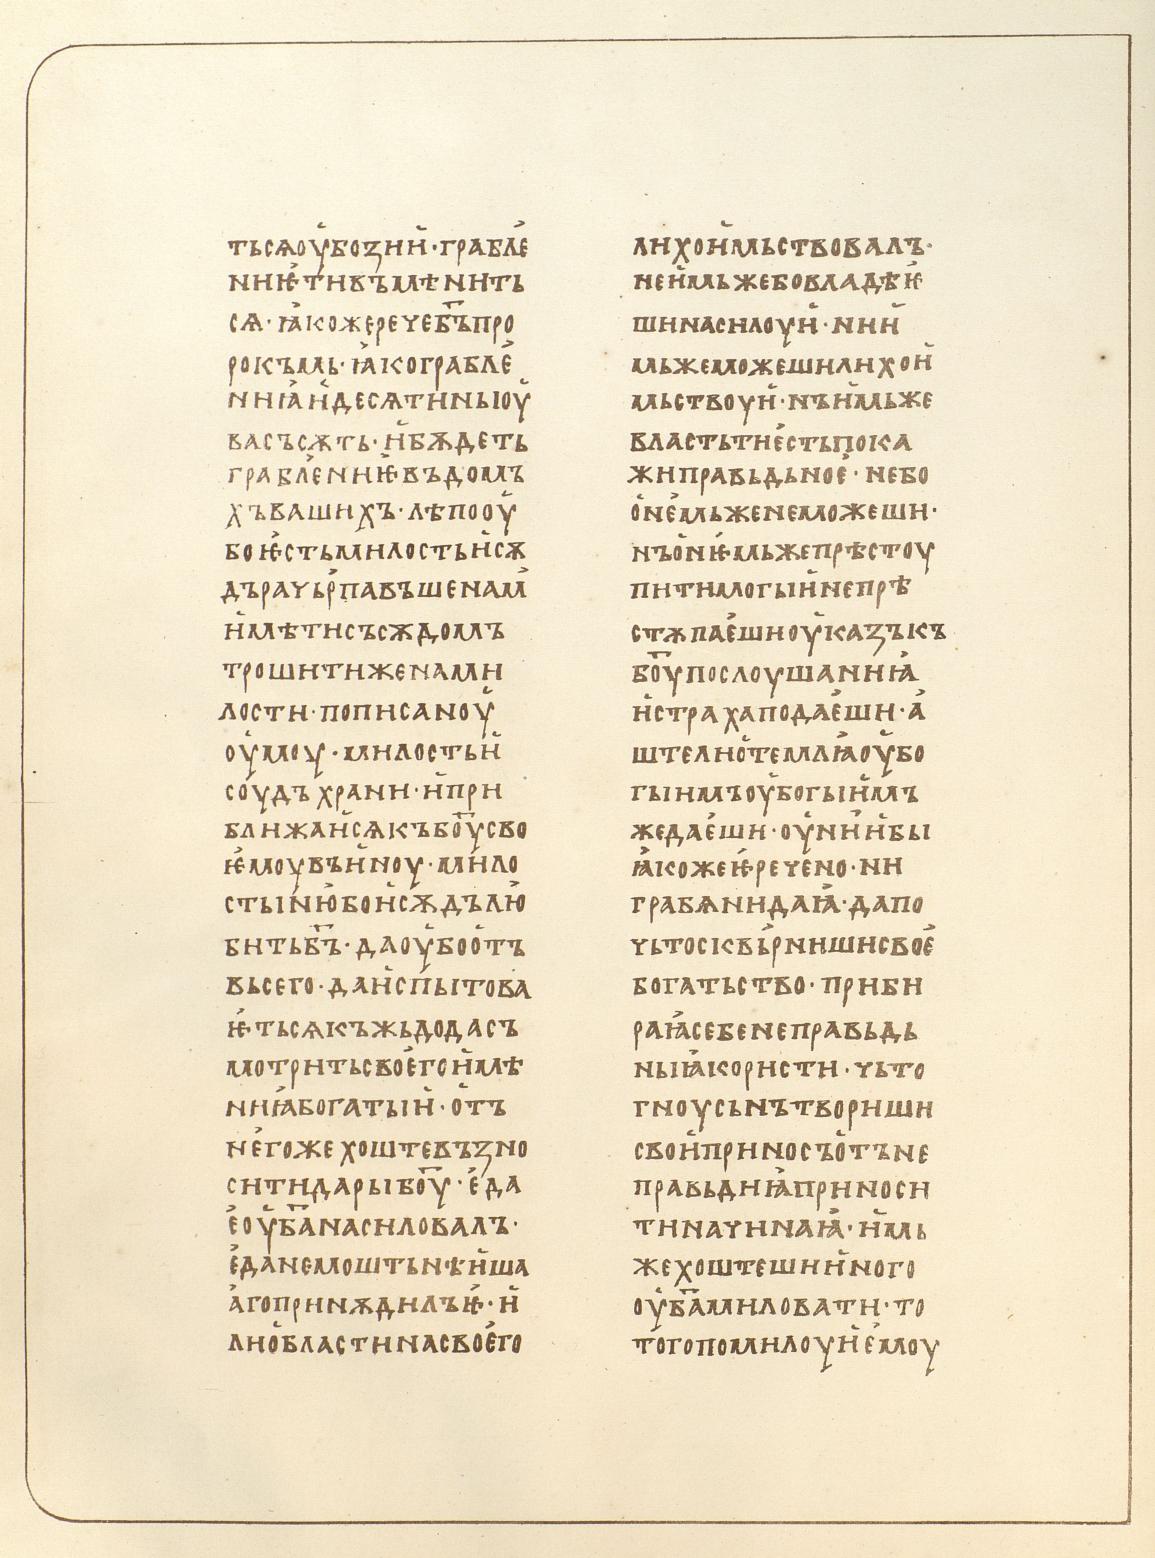 тьсѧоу҆бозии҆·грабл҄е
ниѥ҆тивъмѣнить
сѧ·ꙗ҆кожеречеб҃ъпро
рокъмь·ꙗ҆кограбл҄е
ниꙗ҆и҆десѧтиныоу҆
васъсѫть·и҆бѫдеть
грабл҄ениѥ҆въдомъ
хъвашихъ·лѣпооу҆
боѥ҆стьмилостьи҆сѫ
дърачьр҄павъшенам҄
и҆мѣтисъсѫдомъ
трошитиженами
лости·пописаноу҆
оу҆моу·милостьи҆
соудъ храни·и҆при
ближаи҆сѧкъбо҃усво
ѥ҆моувъи҆ноу·мило
стын҄ѭбои҆сѫдъл҄ю
битьб҃ъ·даоу҆боо҆тъ
вьсего·даи҆спытова
ѥ҆тьсѧкъжьдодасъ
мотритьсвое҆гои҆мѣ
ниꙗ҆богатыи҆·о҆тъ
н҄егоже хоштевъꙁно
ситидарыбо҃у·е҆да
е҆оу҆б҃анасиловалъ·
е҆данемоштьнѣи҆ша
а҆гопринѫдилъѥ҆·и҆
лио҆властинасвое҆го
лихои҆мьствовалъ·
неи҆мьжебовладѣѥ҆
шинасилоуи҆·нии҆
мьжеможешилихои҆
мьствоуи҆·нъи҆мьже
властьтие҆стьпока
жиправьдьное҆·небо
о҆н҄емьженеможеши·
нъо҆нѥ҆мьжепрѣстоу
питимогыи҆непрѣ
стѫпае҆шиоу҆каꙁъкъ
бо҃упослоушаниꙗ҆
и҆страхаподае҆ши·а҆
штелио҆темлꙗ҆оу҆бо
гыимъоу҆богыи҆мъ
жедае҆ши·оу҆нѣи҆бы
ꙗ҆кожеѥ҆речено·ни
грабѧнидаꙗ҆·дапо
чьтосквьр҄нишисвое҆
богатьство·приби
раꙗ҆себенеправьдь
ныꙗ҆користи·чьто
гноусьнътвориши
свои҆приносъо҆тъне
правьдиꙗ҆приноси
тиначинаꙗ҆·и҆мь
жехоштешии҆ного
оу҆б҃амиловати·то
тогопомилоуи҆е҆моу